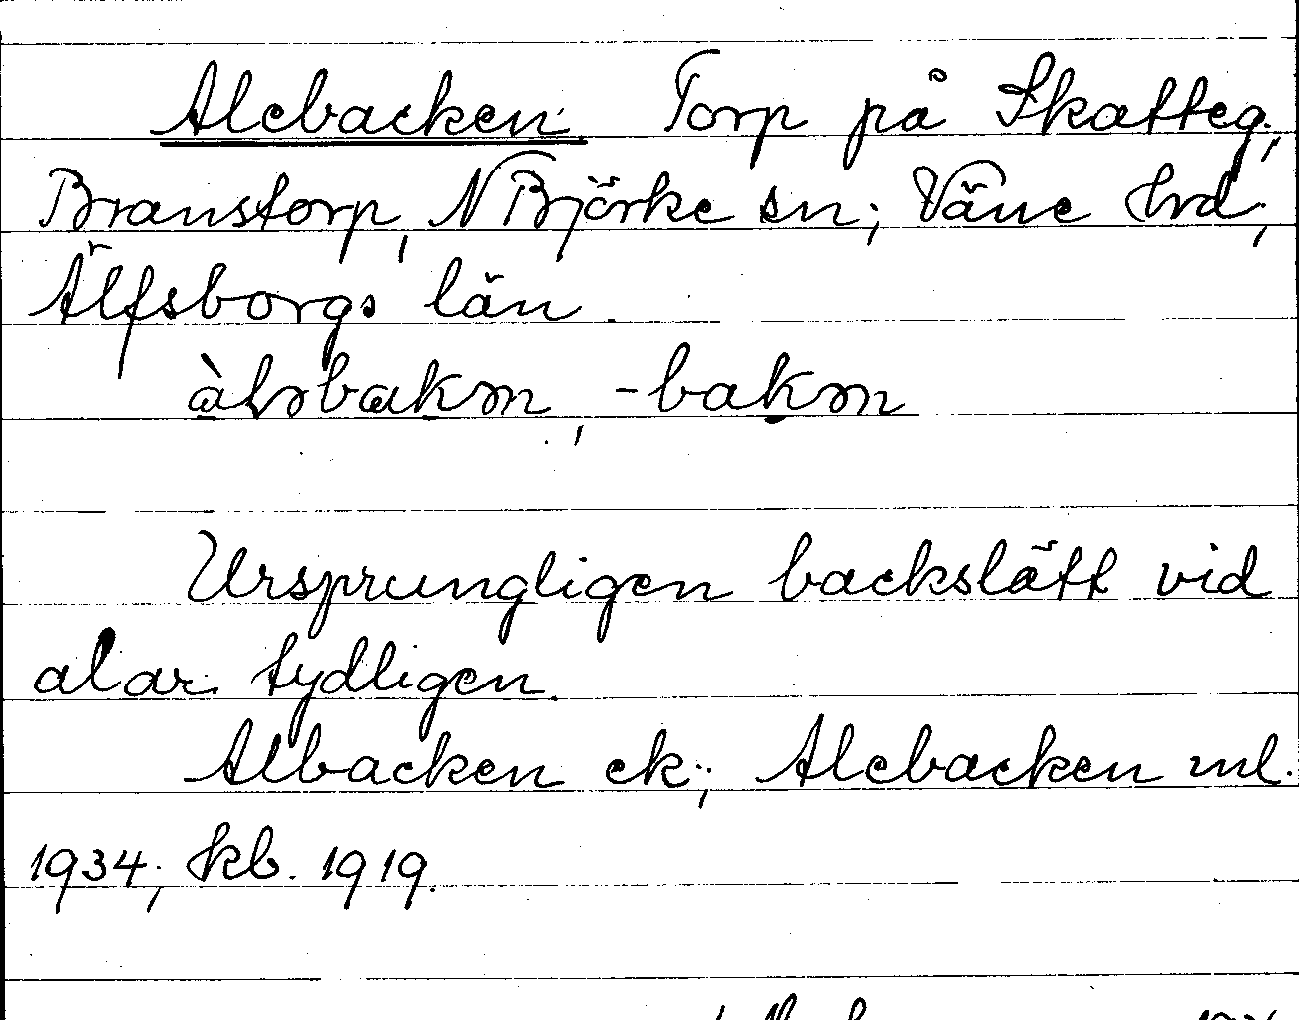 Alebacken. Torp på Skatteg.,
Branstorp, N Björke sn; Väne hrd,
Älfsborgs län.
-bakən
Ursprungligen backslätt vid
alar tydligen.
Albacken ek.; Alebacken ml.
1934; kb. 1919.